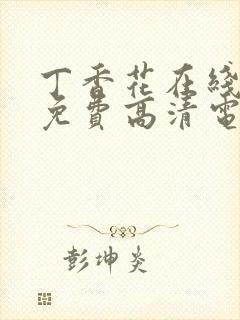 丁香花在线
免费高清电
彭坤炎